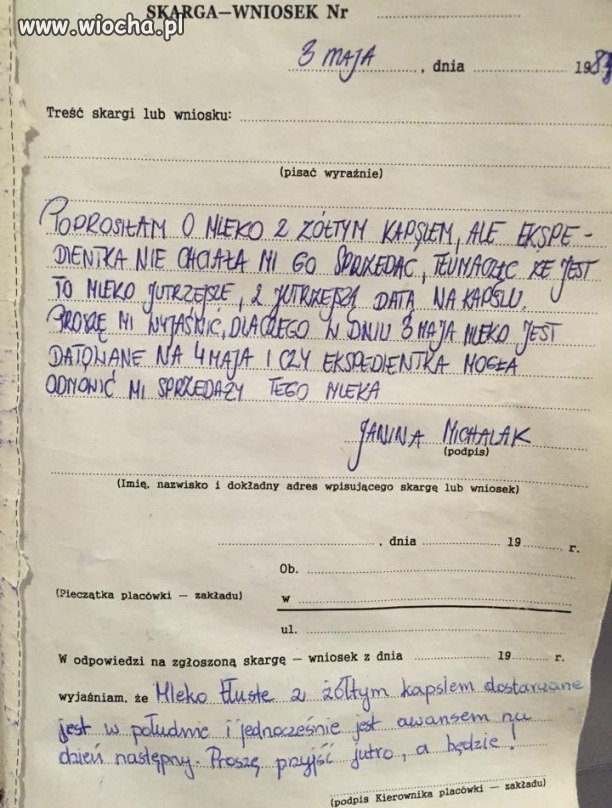 www.wiocha.pl
SKARGA—WNIOSEK Nr
3 MAJA , dnia 1983
Treść skargi lub wniosku:
(pisać wyraźnie)
POPROSIŁAM O MLEKO Z ŻÓŁTYM KAPSLEM, ALE EKSPE-
DIENTKA NIE CHCIAŁA MI GO SPRZEDAĆ, TŁUMACZĄC ŻE JEST
TO MLEKO JUTRZEJSZE, Z JUTRZEJSZĄ DATĄ NA KAPSLU.
PROSZĘ MI WYJAŚNIĆ, DLACZEGO W DNIU 3 MAJA MLEKO JEST
DATOWANE NA 4 MAJA I CZY EKSPEDIENTKA MOGŁA
ODMÓWIĆ MI SPRZEDAŻY TEGO MLEKA
JANINA MICHALAK
(podpis)
(Imię, nazwisko i dokładny adres wpisującego skargę lub wniosek)
, dnia 19 r.
Ob.
(Pieczątka placówki — zakładu) w
ul.
W odpowiedzi na zgłoszoną skargę — wniosek z dnia 19 r.
wyjaśniam, że Mleko tłuste z żółtym kapslem dostarczane
jest w południe i jednocześnie jest awansem na
dzień następny. Proszę przyjść jutro, a będzie!
(podpis Kierownika placówki — zakładu)